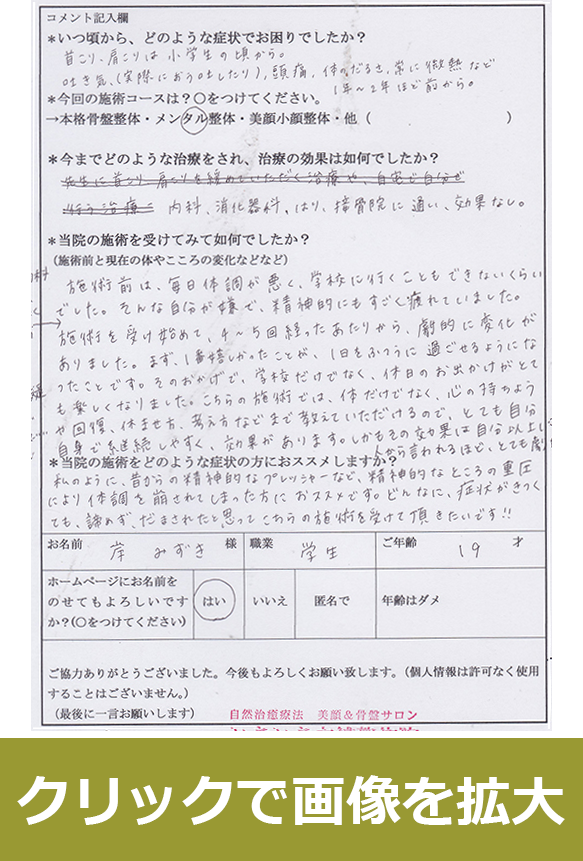 コメント記入欄
*いつ頃から、どのような症状でお困りでしたか？
首こり、肩こりは小学生の頃から。
吐き気、(実際におう吐したり)、頭痛、体のだるさ、常に微熱など
1年〜2年ほど前から。
*今回の施術コースは？○をつけてください。
→本格骨盤整体・メンタル整体・美顔小顔整体・他（　　　　）
*今までどのような治療をされ、治療の効果は如何でしたか？
先生に首こり肩こりを緩めていただく治療や、自宅で自分が
行う治療に 内科、消化器科、はり、接骨院に通い、効果なし。
*当院の施術を受けてみて如何でしたか？
（施術前と現在の体やこころの変化などなど）
施術前は、毎日体調が悪く、学校に行くこともできないくらい
でした。そんな自分が嫌で、精神的にもすごく疲れていました。
施術を受け始めて、4〜5回経ったあたりから、劇的に変化が
ありました。まず、1番嬉しかったことが、1日をふつうに過ごせるようにな
ったことです。そのおかげで、学校だけでなく、休日のお出かけがとて
も楽しくなりました。こちらの施術では、体だけでなく、心の持ちよう
や回復、休ませ方、考え方などまで教えていただけるので、とても自分
自身で継続しやすく、効果があります。しかもその効果は自分以上に
人から言われるほど、とても劇
*当院の施術をどのような症状の方におススメしますか？
私のように、昔からの精神的なプレッシャーなど、精神的なところの重圧
により体調を崩されてしまった方におススメです。どんなに、症状がきつく
ても、諦めず、だまされたと思ってこちらの施術を受けて頂きたいです!!
お名前 岸 みずき 様 職業 学生 ご年齢 19 才
ホームページにお名前を
のせてもよろしいです
か？(○をつけてください)
はい いいえ 匿名で 年齢はダメ
ご協力ありがとうございました。今後もよろしくお願い致します。（個人情報は許可なく使用
することはございません。）
（最後に一言お願いします）
自然治癒療法 美顔＆骨盤サロン
クリックで画像を拡大